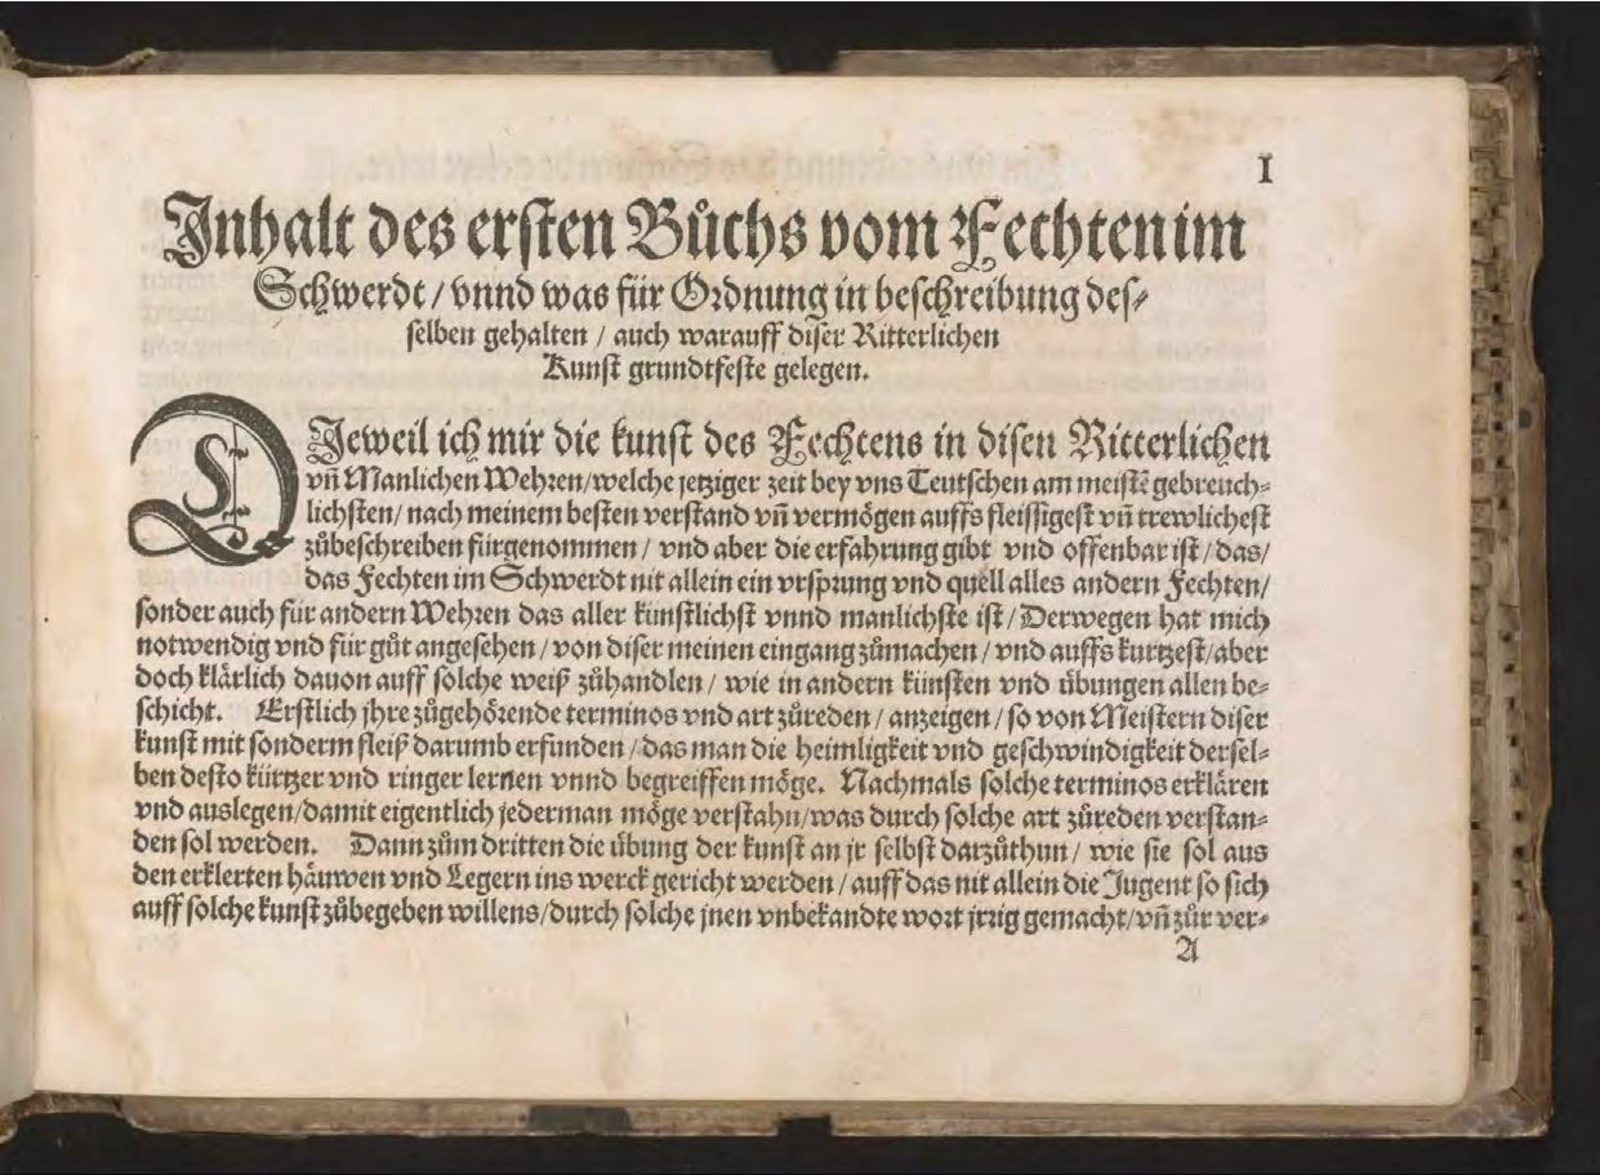 I
Inhalt des ersten Bůchs vom Fechten im
Schwerdt / vnnd was für Ordnung in beschreibung des⸗
selben gehalten / auch warauff diser Ritterlichen
Kunst grundtfeste gelegen.
DJeweil ich mir die kunst des Fechtens in disen Ritterlichen
vn̄ Manlichen Wehren/welche jetziger zeit bey vns Teutschen am meistē gebreuch⸗
lichsten/ nach meinem besten verstand vn̄ vermögen auffs fleissigest vn̄ trewlichest
zůbeschreiben fürgenommen / vnd aber die erfahrung gibt vnd offenbar ist / das/
das Fechten im Schwerdt nit allein ein vrsprung vnd quell alles andern Fechten/
sonder auch für andern Wehren das aller künstlichst vnnd manlichste ist / Derwegen hat mich
notwendig vnd für gůt angesehen / von diser meinen eingang zůmachen / vnd auffs kurtzest/aber
doch klärlich dauon auff solche weiß zůhandlen / wie in andern künsten vnd übungen allen be⸗
schicht. Erstlich jhre zůgehörende terminos vnd art zůreden / anzeigen / so von Meistern diser
kunst mit sonderm fleiß darumb erfunden / das man die heimligkeit vnd geschwindigkeit dersel⸗
ben desto kürtzer vnd ringer lernen vnnd begreiffen möge. Nachmals solche terminos erklären
vnd auslegen/damit eigentlich jederman möge verstahn/was durch solche art zůreden verstan⸗
den sol werden. Dann zům dritten die übung der kunst an jr selbst darzůthun / wie sie sol aus
den erklerten häuwen vnd Legern ins werck gericht werden / auff das nit allein die Jugent so sich
auff solche kunst zůbegeben willens/durch solche jnen vnbekandte wort jrrig gemacht/vn̄ zůr ver⸗
A